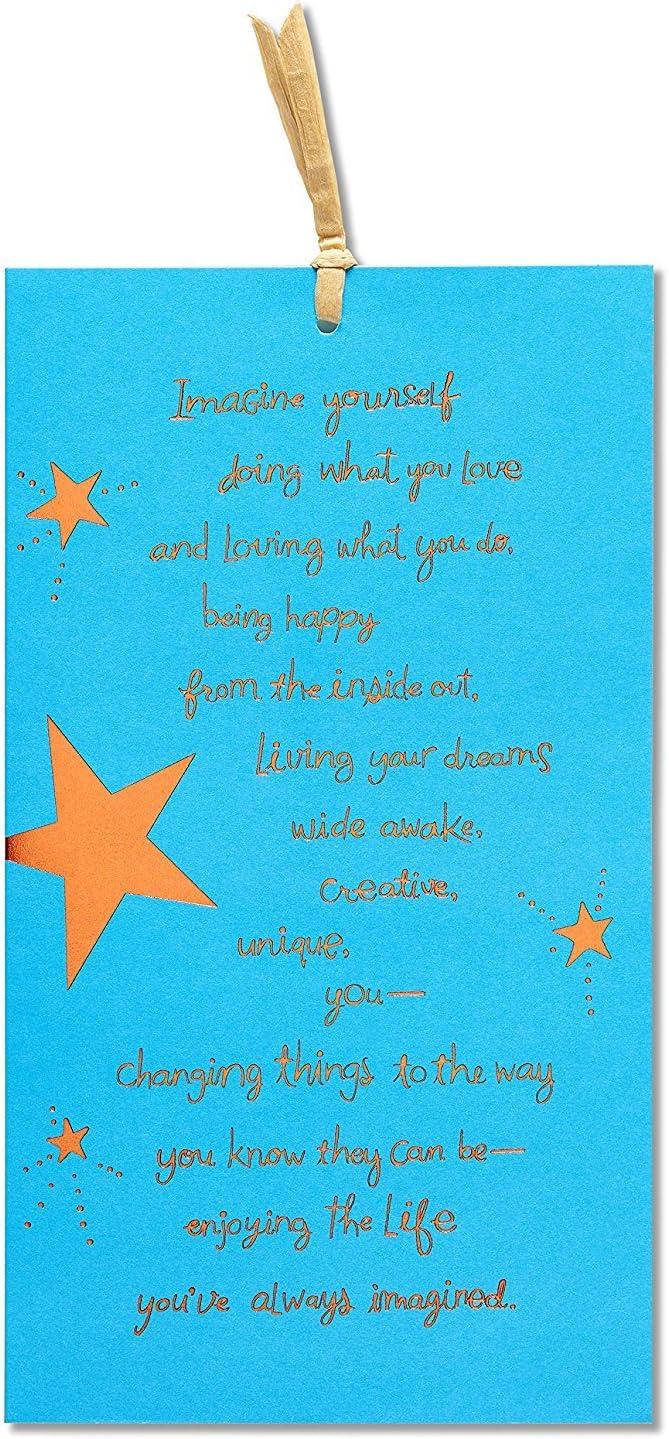 Imagine yourself
doing what you love
and loving what you do,
being happy
from the inside out,
living your dreams
wide awake,
creative,
unique,
you—
changing things to the way
you know they can be—
enjoying the life
you've always imagined.